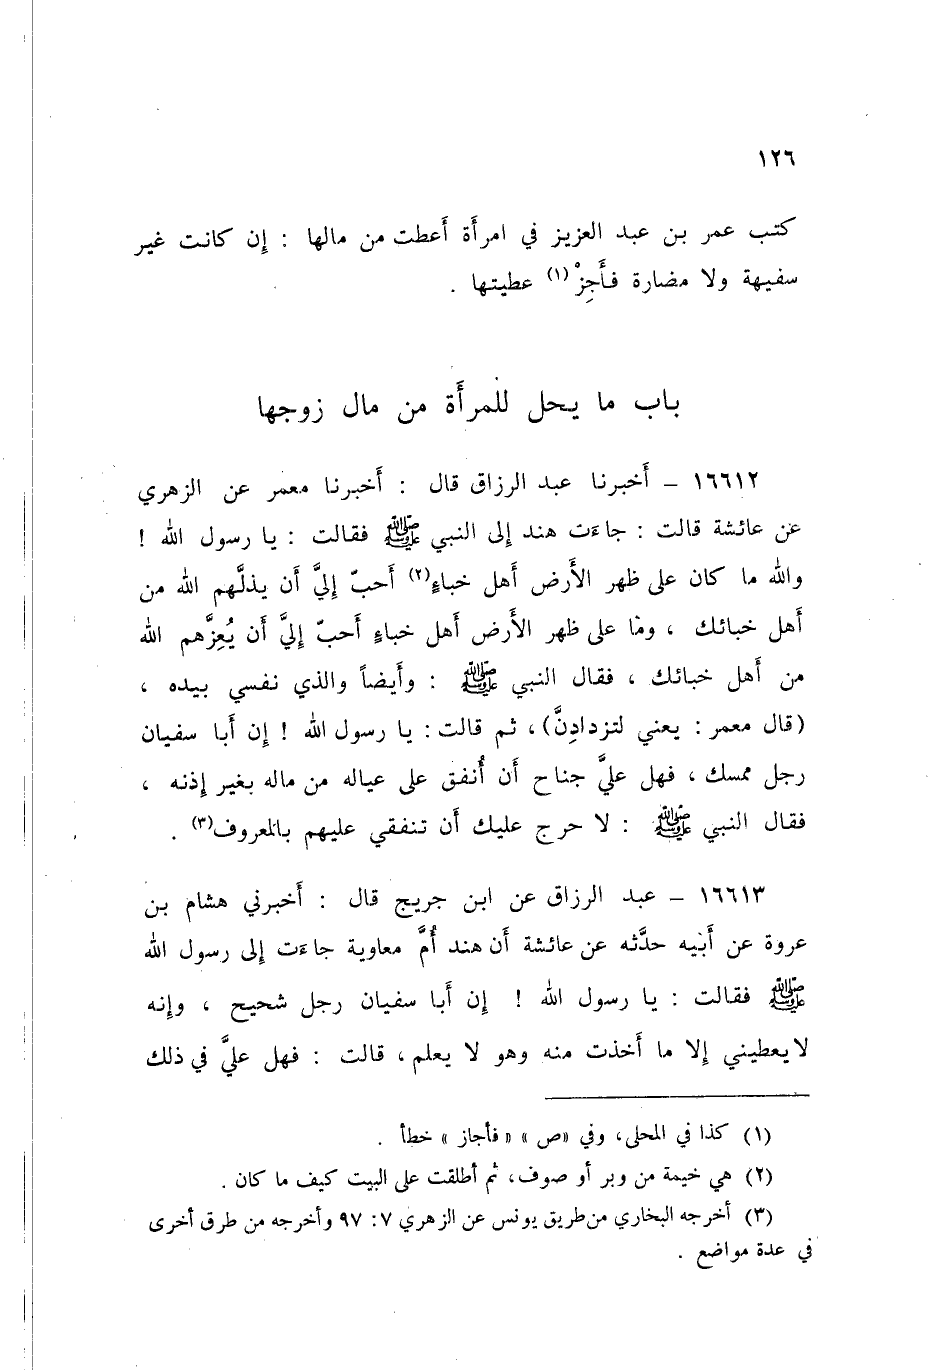 ١٢٦
كتب عمر بن عبد العزيز في امرأة أعطت من مالها : إن كانت غير
سفيهة ولا مضارة فأَجِزْ(١) عطيتها .
باب ما يحل للمرأة من مال زوجها
١٦٦١٢ – أخبرنا عبد الرزاق قال : أخبرنا معمر عن الزهري
عن عائشة قالت : جاءت هند إلى النبي ﷺ فقالت : يا رسول الله !
والله ما كان على ظهر الأرض أهل خباءٍ(٢) أحبّ إليَّ أن يذلَّهم الله من
أهل خبائك ، وما على ظهر الأرض أهل خباءٍ أحبّ إليَّ أن يُعِزَّهم الله
من أهل خبائك ، فقال النبي ﷺ : وأيضاً والذي نفسي بيده ،
(قال معمر : يعني لتزدادِنَّ) ، ثم قالت : يا رسول الله ! إن أبا سفيان
رجل ممسك ، فهل عليَّ جناح أن أُنفق على عياله من ماله بغير إذنه ،
فقال النبي ﷺ : لا حرج عليك أن تنفقي عليهم بالمعروف(٣) .
١٦٦١٣ – عبد الرزاق عن ابن جريج قال : أخبرني هشام بن
عروة عن أبيه حدَّثه عن عائشة أن هند أُمَّ معاوية جاءت إلى رسول الله
ﷺ فقالت : يا رسول الله ! إن أبا سفيان رجل شحيح ، وإنه
لا يعطيني إلا ما أخذت منه وهو لا يعلم ، قالت : فهل عليَّ في ذلك
(١) كذا في المحلى، وفي «ص» «فأجاز» خطأ .
(٢) هي خيمة من وبر أو صوف، ثم أطلقت على البيت كيف ما كان .
(٣) أخرجه البخاري من طريق يونس عن الزهري ٧: ٩٧ وأخرجه من طرق أخرى
في عدة مواضع .